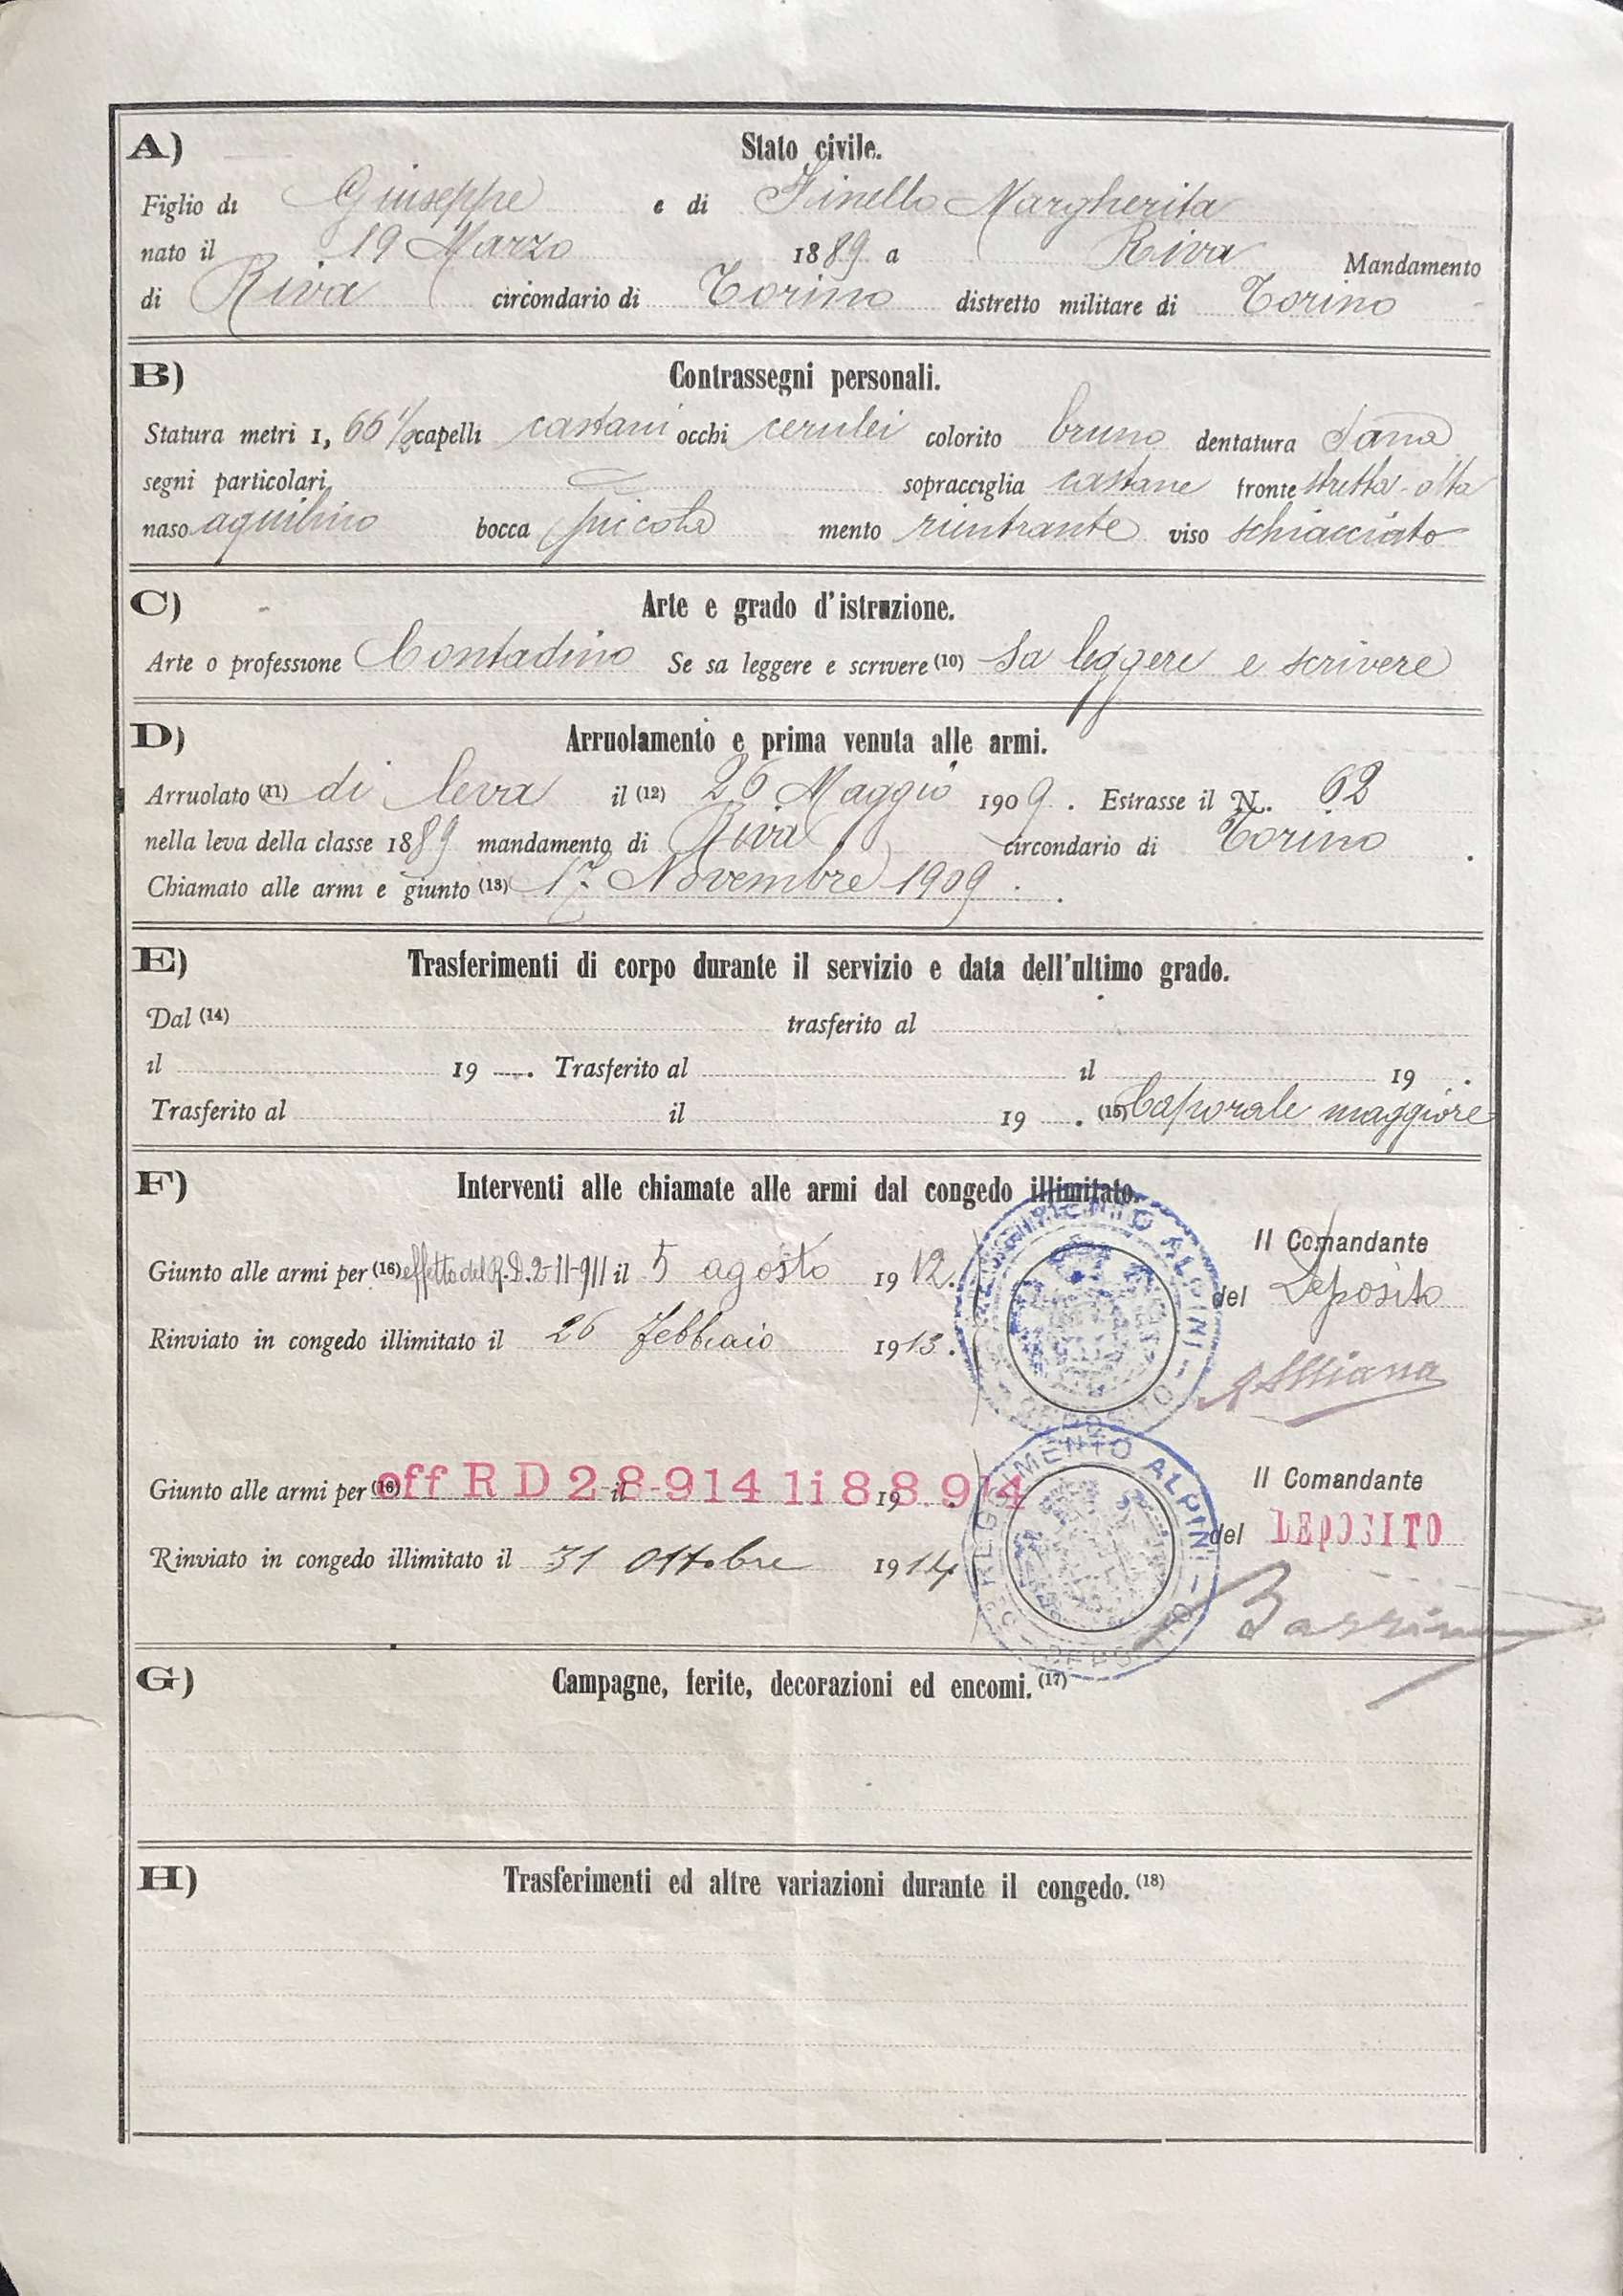 A) Stato civile.
Figlio di Giuseppe e di Finello Margherita
nato il 19 Marzo 1889 a Riva Mandamento
di Riva circondario di Torino distretto militare di Torino
B) Contrassegni personali.
Statura metri 1, 66 1/2 capelli castani occhi cerulei colorito bruno dentatura sana
segni particolari sopracciglia castane fronte stretta-alta
naso aquilino bocca piccola mento rientrante viso schiacciato
C) Arte e grado d'istruzione.
Arte o professione Contadino Se sa leggere e scrivere (10) Sa leggere e scrivere
D) Arruolamento e prima venuta alle armi.
Arruolato (11) di leva il (12) 26 Maggio 1909. Estrasse il N. 62
nella leva della classe 1889 mandamento di Riva circondario di Torino.
Chiamato alle armi e giunto (13) 17 Novembre 1909.
E) Trasferimenti di corpo durante il servizio e data dell'ultimo grado.
Dal (14) trasferito al
il 19 . Trasferito al il 19 .
Trasferito al il 19 . (15) Caporale maggiore
F) Interventi alle chiamate alle armi dal congedo illimitato.
Il Comandante
Giunto alle armi per (16) effetto del R.D. 2-11-911 il 5 agosto 1912.
del Deposito
Rinviato in congedo illimitato il 26 febbraio 1913.
REGGIMENTO ALPINI - DEPOSITO -
Il Comandante
Giunto alle armi per (16) eff R D 2-8-914 li 8 8 914 il 19 .
del DEPOSITO
Rinviato in congedo illimitato il 31 Ottobre 1914
REGGIMENTO ALPINI - DEPOSITO -
G) Campagne, ferite, decorazioni ed encomi. (17)
H) Trasferimenti ed altre variazioni durante il congedo. (18)